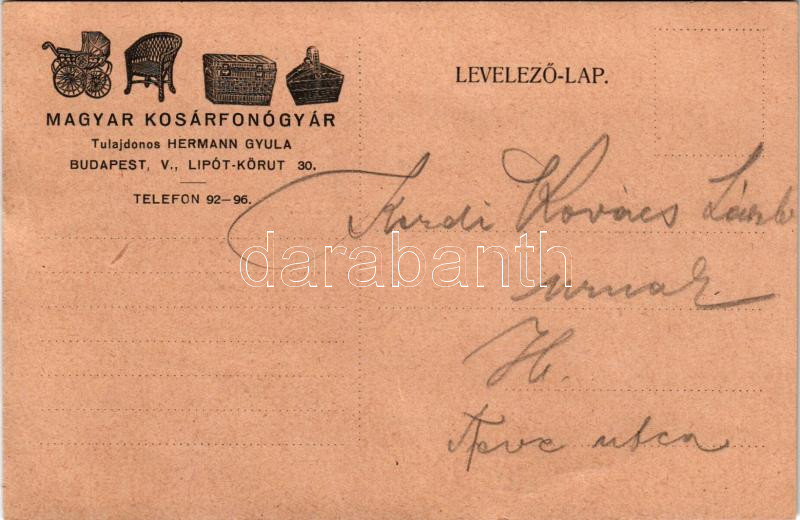 MAGYAR KOSÁRFONÓGYÁR
Tulajdonos HERMANN GYULA
BUDAPEST, V., LIPÓT-KÖRUT 30.
TELEFON 92–96.
LEVELEZŐ-LAP.
Kovács
urnak
H.
utca
darabanth